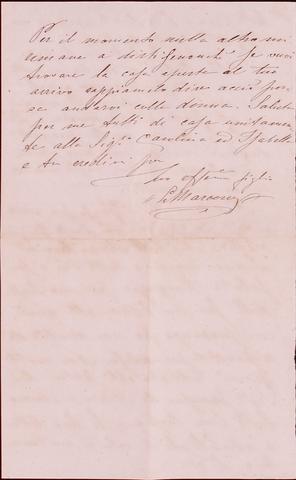 Per il momento nulla altro mi
rimane a dirti
se vuoi
trovare la casa aperta al tuo
arrivo sappimelo dire acciò pos-
sa andarvi colla donna. Saluta
per me tutti di casa unitamen-
te alla Sigª Carolina ed Isabella
e tu credimi per
tuo affmo figlio
Marconi